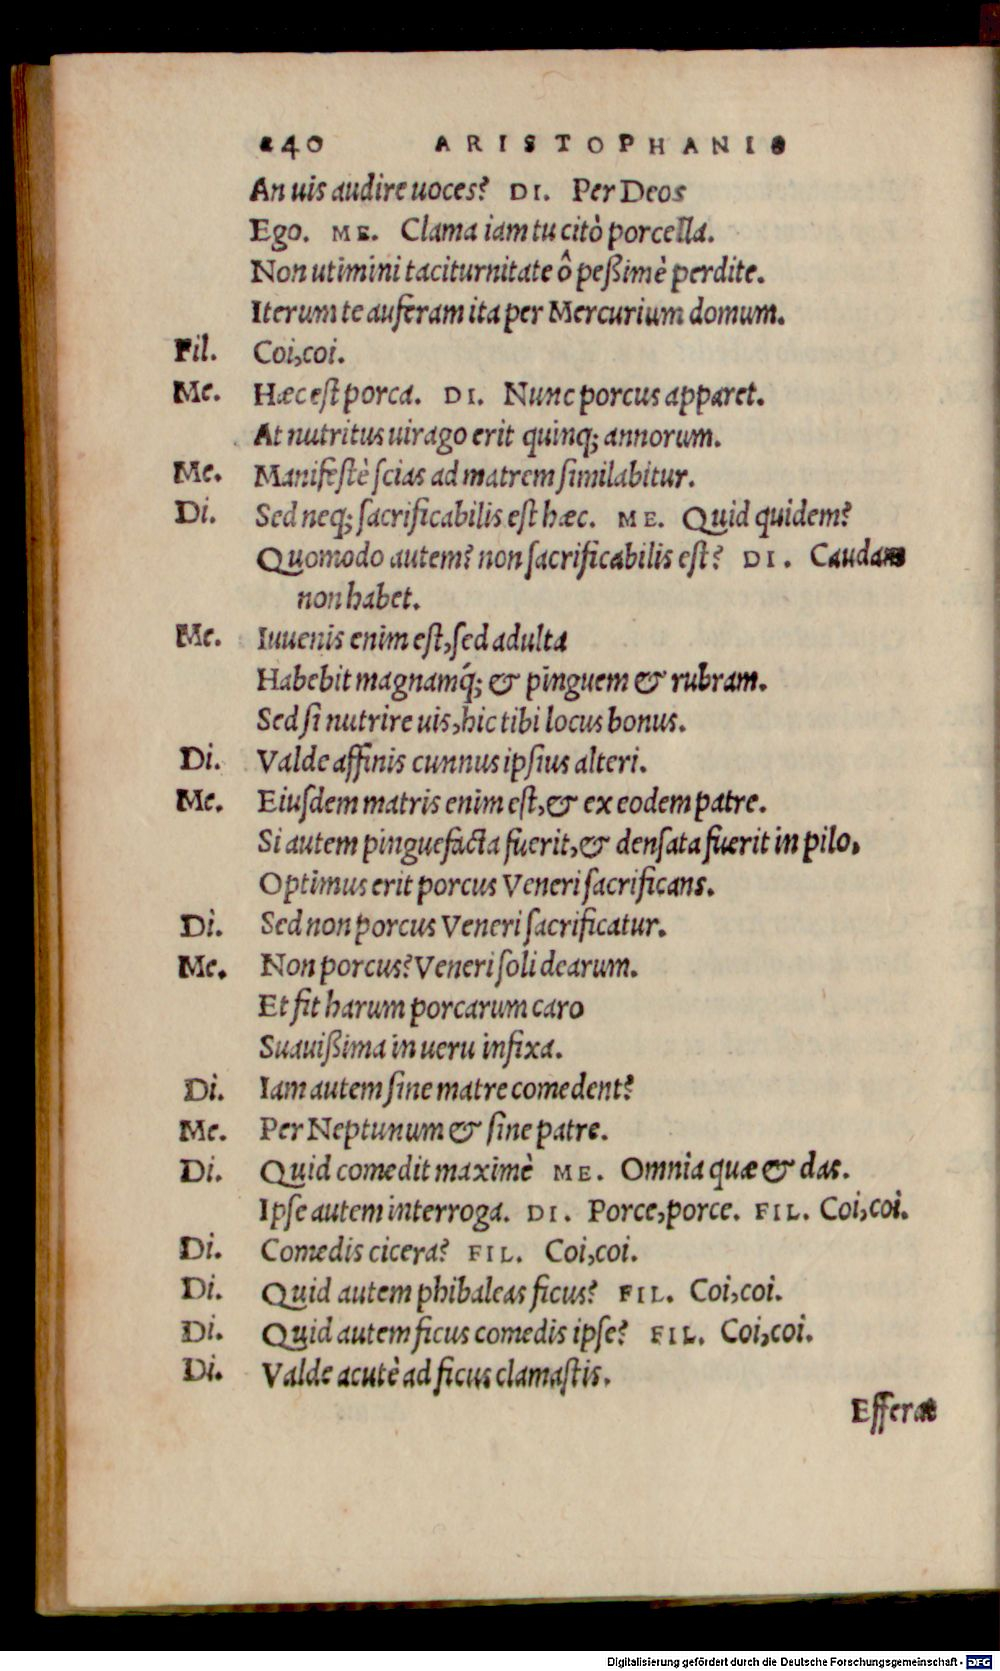 240 ARISTOPHANIS
An uis audire uoces? DI. Per Deos
Ego. ME. Clama iam tu citò porcella.
Non utimini taciturnitate ô peßimè perdite.
Iterum te auferam ita per Mercurium domum.
Fil. Coi, coi.
Me. Hæc est porca. DI. Nunc porcus apparet.
At nutritus uirago erit quinq; annorum.
Me. Manifestè scias ad matrem similabitur.
Di. Sed neq; sacrificabilis est hæc. ME. Quid quidem?
Quomodo autem? non sacrificabilis est? DI. Caudam
non habet.
Me. Iuuenis enim est, sed adulta
Habebit magnamq́; & pinguem & rubram.
Sed si nutrire uis, hic tibi locus bonus.
Di. Valde affinis cunnus ipsius alteri.
Me. Eiusdem matris enim est, & ex eodem patre.
Si autem pinguefacta fuerit, & densata fuerit in pilo,
Optimus erit porcus Veneri sacrificans.
Di. Sed non porcus Veneri sacrificatur.
Me. Non porcus? Veneri soli dearum.
Et fit harum porcarum caro
Suauißima in ueru infixa.
Di. Iam autem sine matre comedent?
Me. Per Neptunum & sine patre.
Di. Quid comedit maximè ME. Omnia quæ & das.
Ipse autem interroga. DI. Porce, porce. FIL. Coi, coi.
Di. Comedis cicera? FIL. Coi, coi.
Di. Quid autem phibaleas ficus? FIL. Coi, coi.
Di. Quid autem ficus comedis ipse? FIL. Coi, coi.
Di. Valde acutè ad ficus clamastis.
Efferat
Digitalisierung gefördert durch die Deutsche Forschungsgemeinschaft - DFG